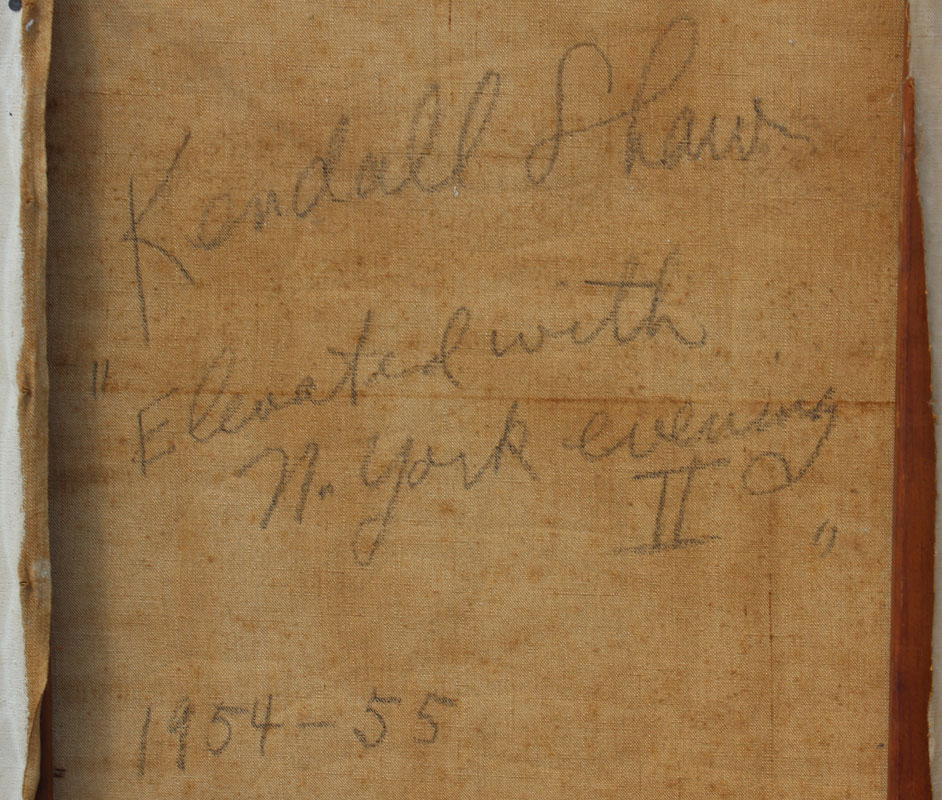 Kendall Shaw
"Elevated with
N. York evening
II"
1954-55